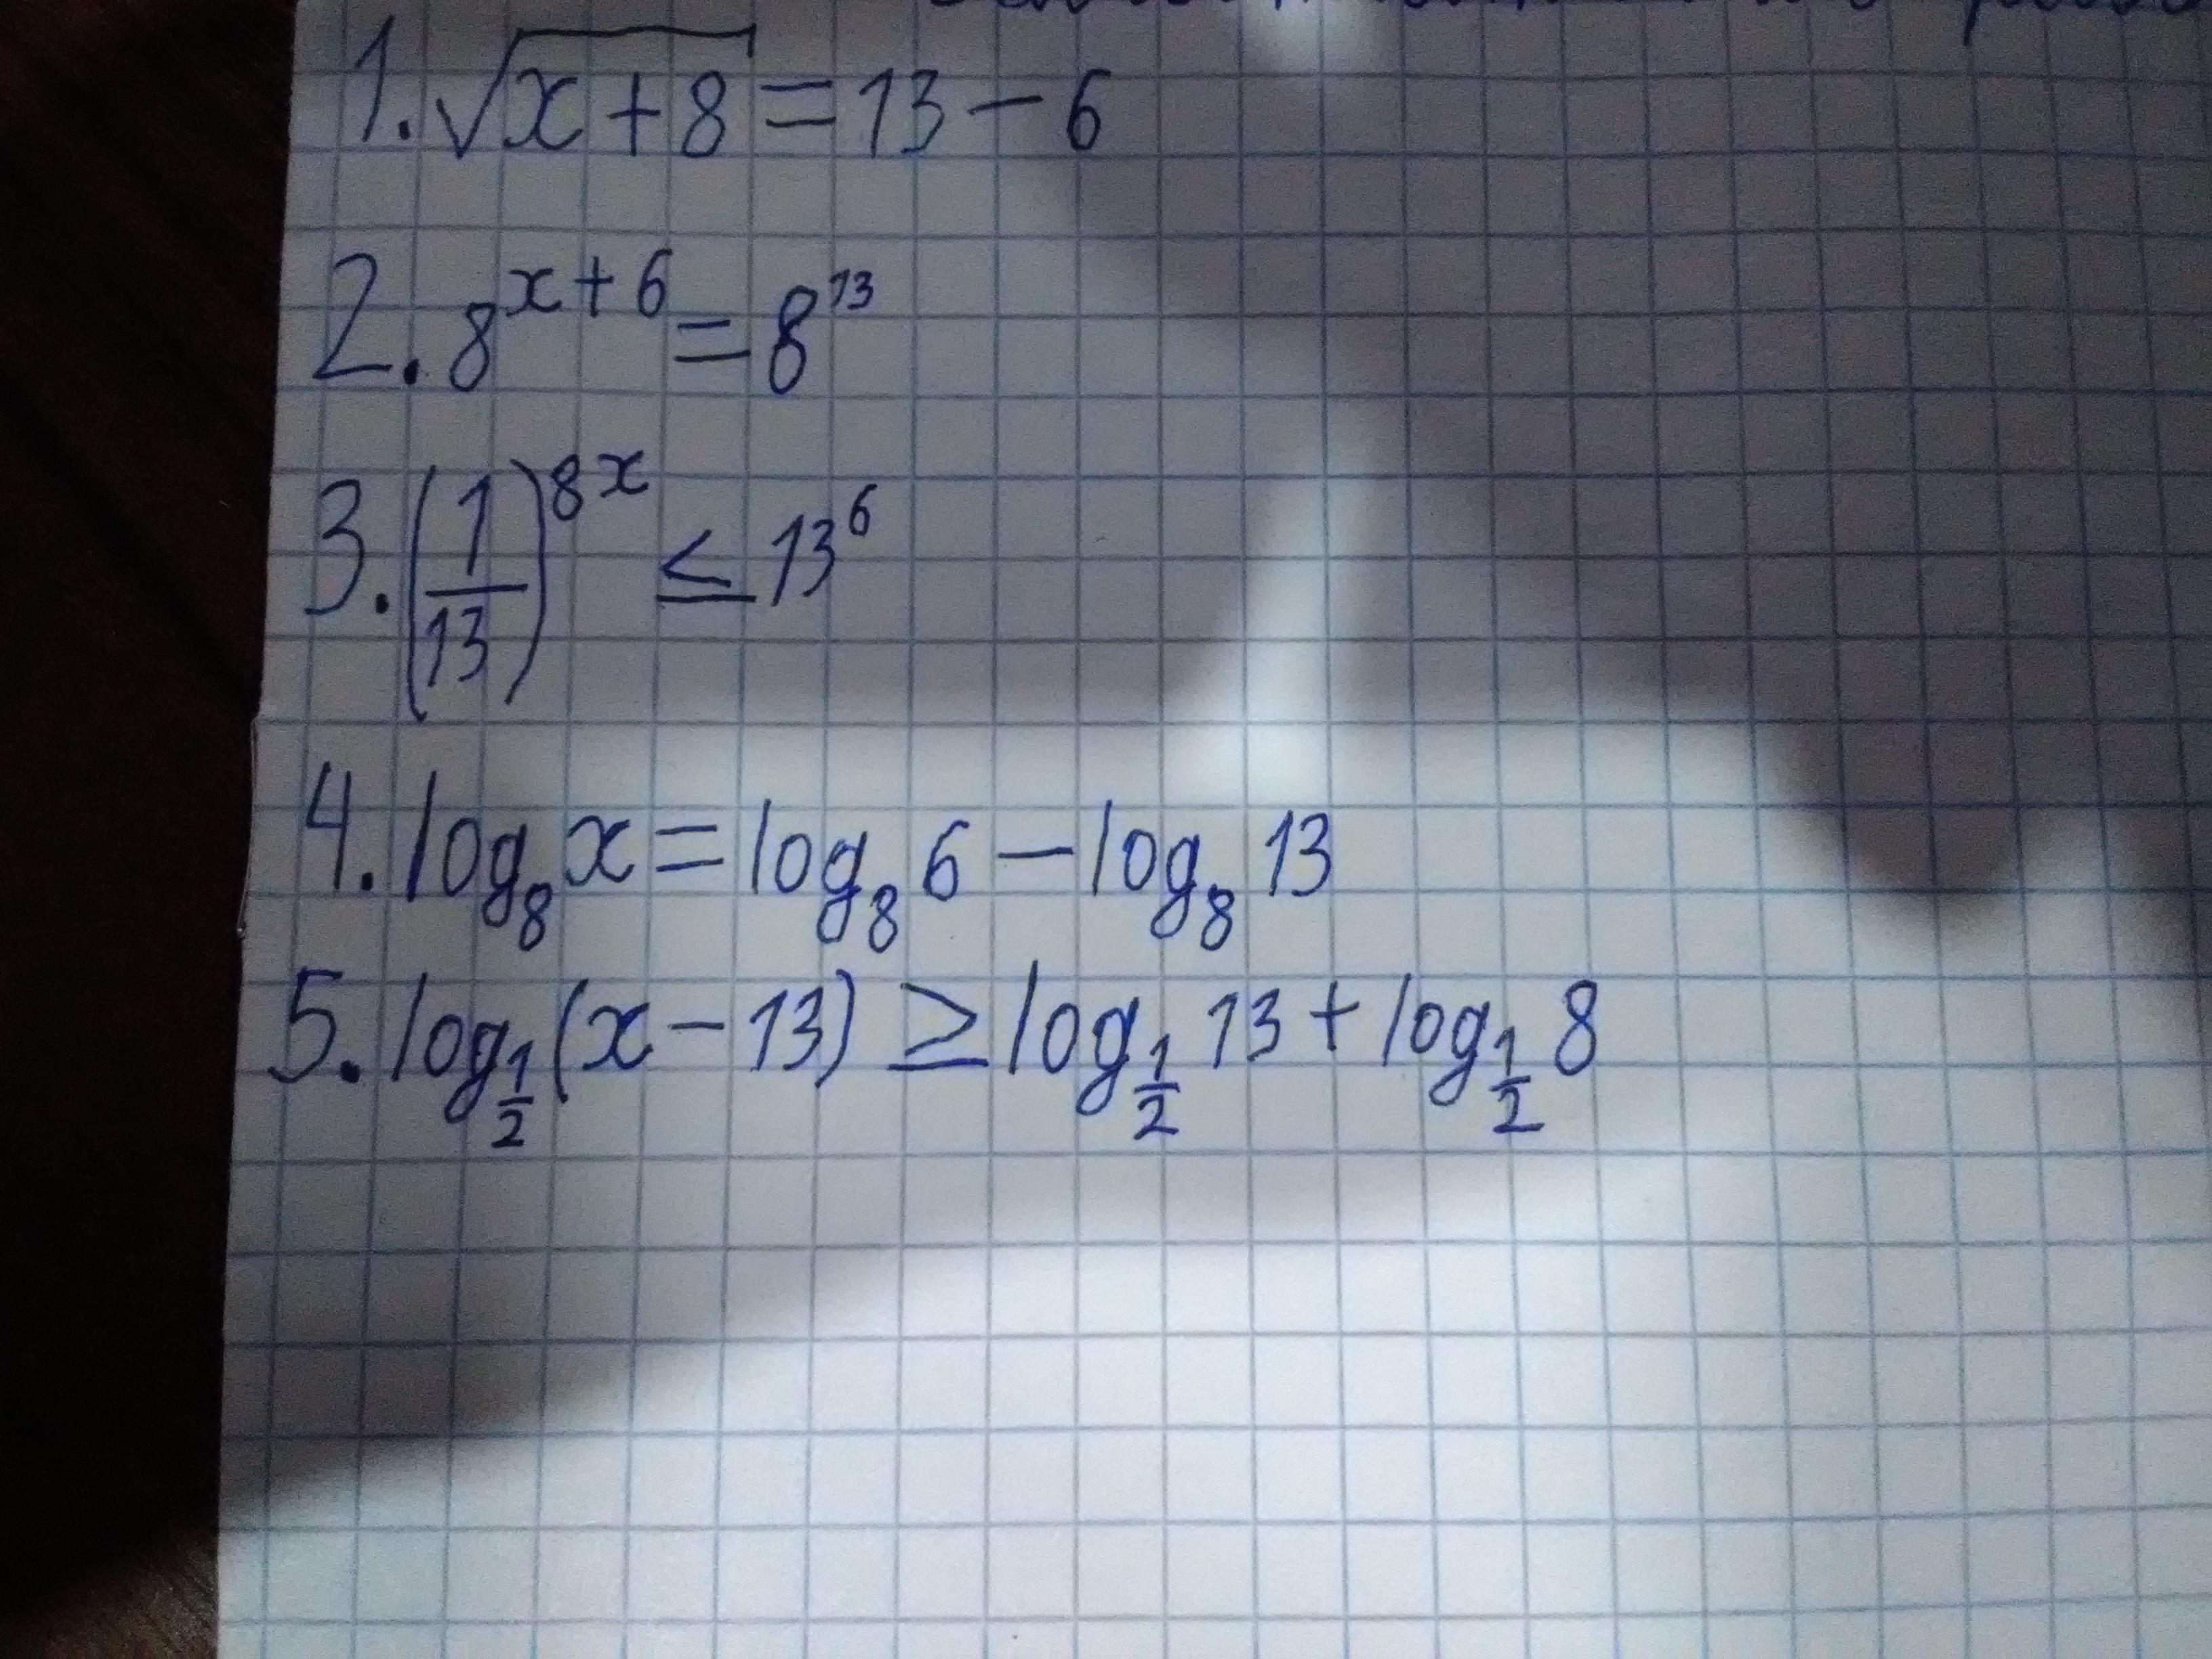 1. √(x+8) = 13 − 6
2. 8^(x+6) = 8^13
3. (1/13)^(8x) ≤ 13^6
4. log₈ x = log₈ 6 − log₈ 13
5. log_(1/2) (x − 13) ≥ log_(1/2) 13 + log_(1/2) 8